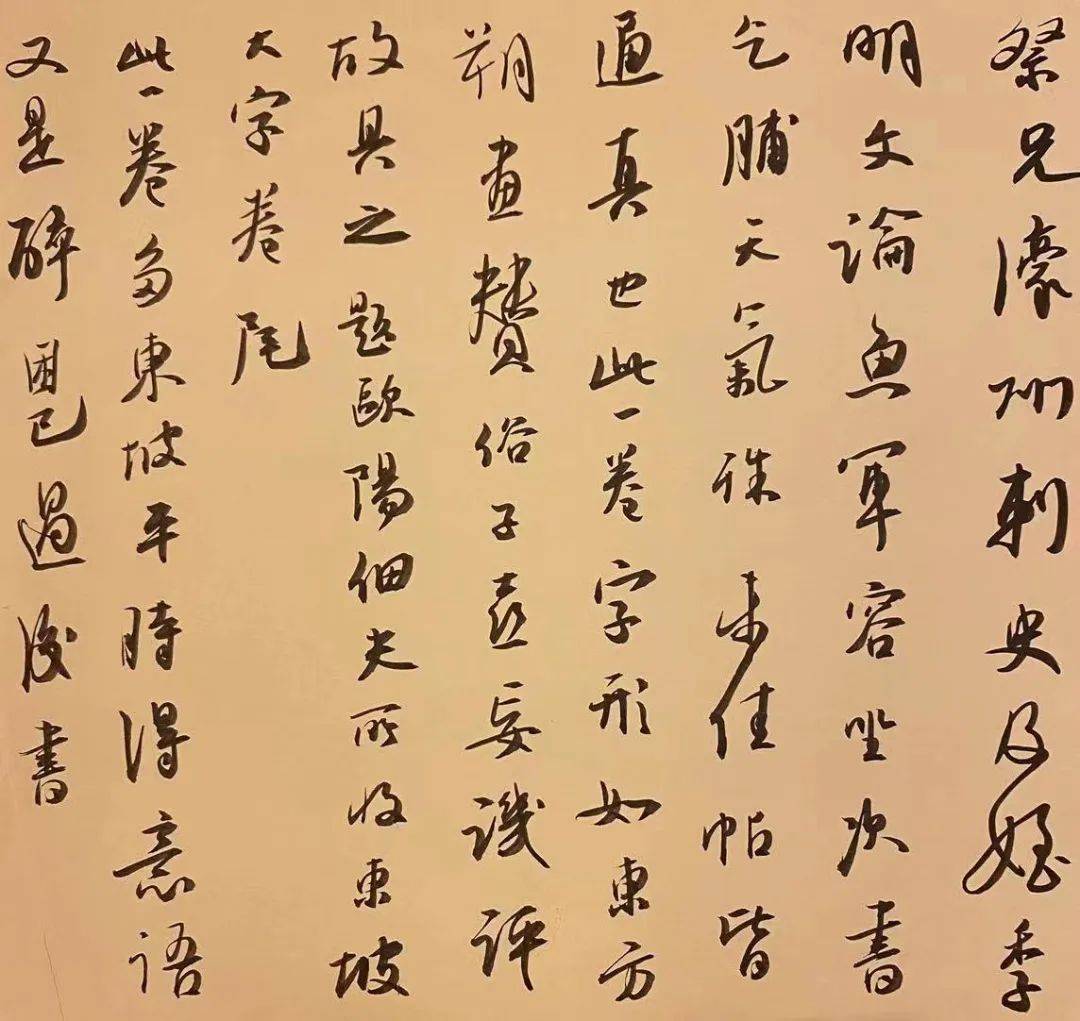 祭兄濠州刺史及姪季
明文論魚軍容坐次書
乞脯天氣殊未佳帖皆
逼真也此一卷字形如東方
朔畫贊俗子喜妄譏評
故具之題歐陽佃夫所收東坡
大字卷尾
此一卷多東坡平時得意語
又是醉困已過後書